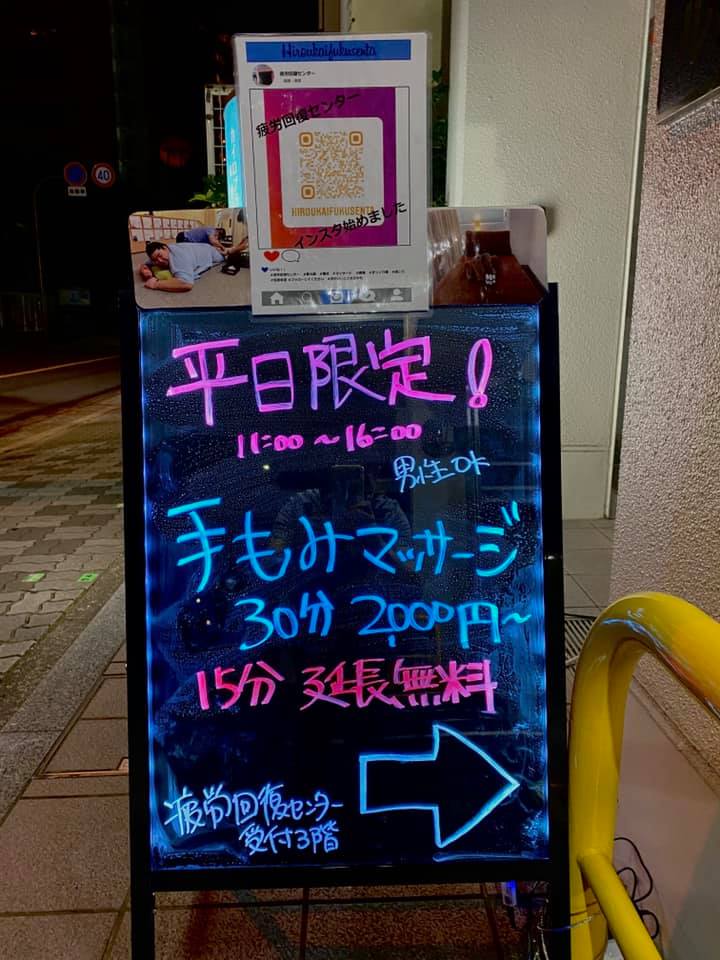 Hiroukaifukusenta
疲労回復センター
疲労回復センター
HIROUKAIFUKUSENTA
インスタ始めました
40
平日限定!
11:00〜16:00
男性OK
手もみマッサージ
30分 2,000円〜
15分 延長無料
疲労回復センター
受付3階